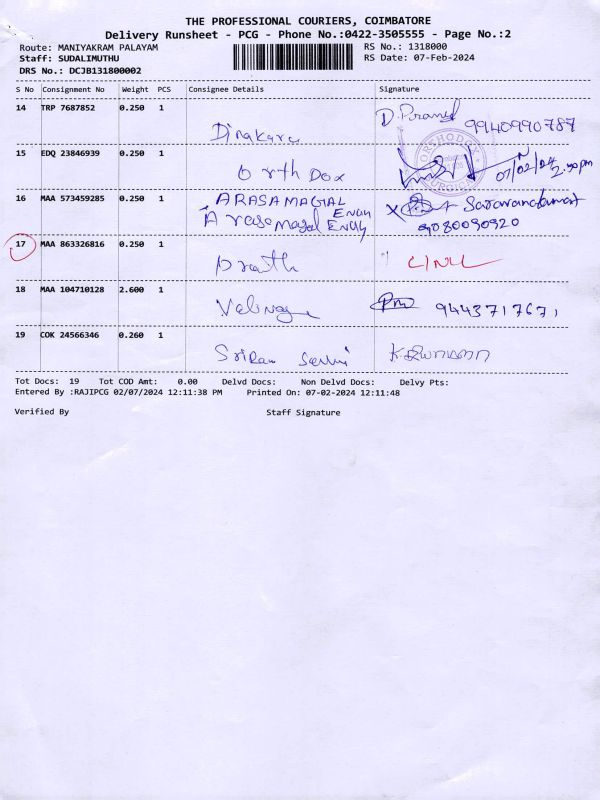 THE PROFESSIONAL COURIERS, COIMBATORE
Delivery Runsheet - PCG - Phone No.:0422-3505555 - Page No.:2
Route: MANIYAKRAM PALAYAM
RS No.: 1318000
Staff: SUDALIMUTHU
RS Date: 07-Feb-2024
DRS No.: DCJB131800002
S No Consignment No Weight PCS Consignee Details Signature
14 TRP 7687852 0.250 1 Dinakara D. Pramod 9940990787
15 EDQ 23846939 0.250 1 Orth Dox ORTHODOX SURGICAL 07/02/24 2.30pm
16 MAA 573459285 0.250 1 ARASAMAGAL ENGG
Arasamagal ENGG Saravanakumar 9080090920
17 MAA 863326816 0.250 1
18 MAA 104710128 2.600 1 9443717671
19 COK 24566346 0.260 1 Sriram
Tot Docs: 19 Tot COD Amt: 0.00 Delvd Docs: Non Delvd Docs: Delvy Pts:
Entered By :RAJIPCG 02/07/2024 12:11:38 PM Printed On: 07-02-2024 12:11:48
Verified By Staff Signature